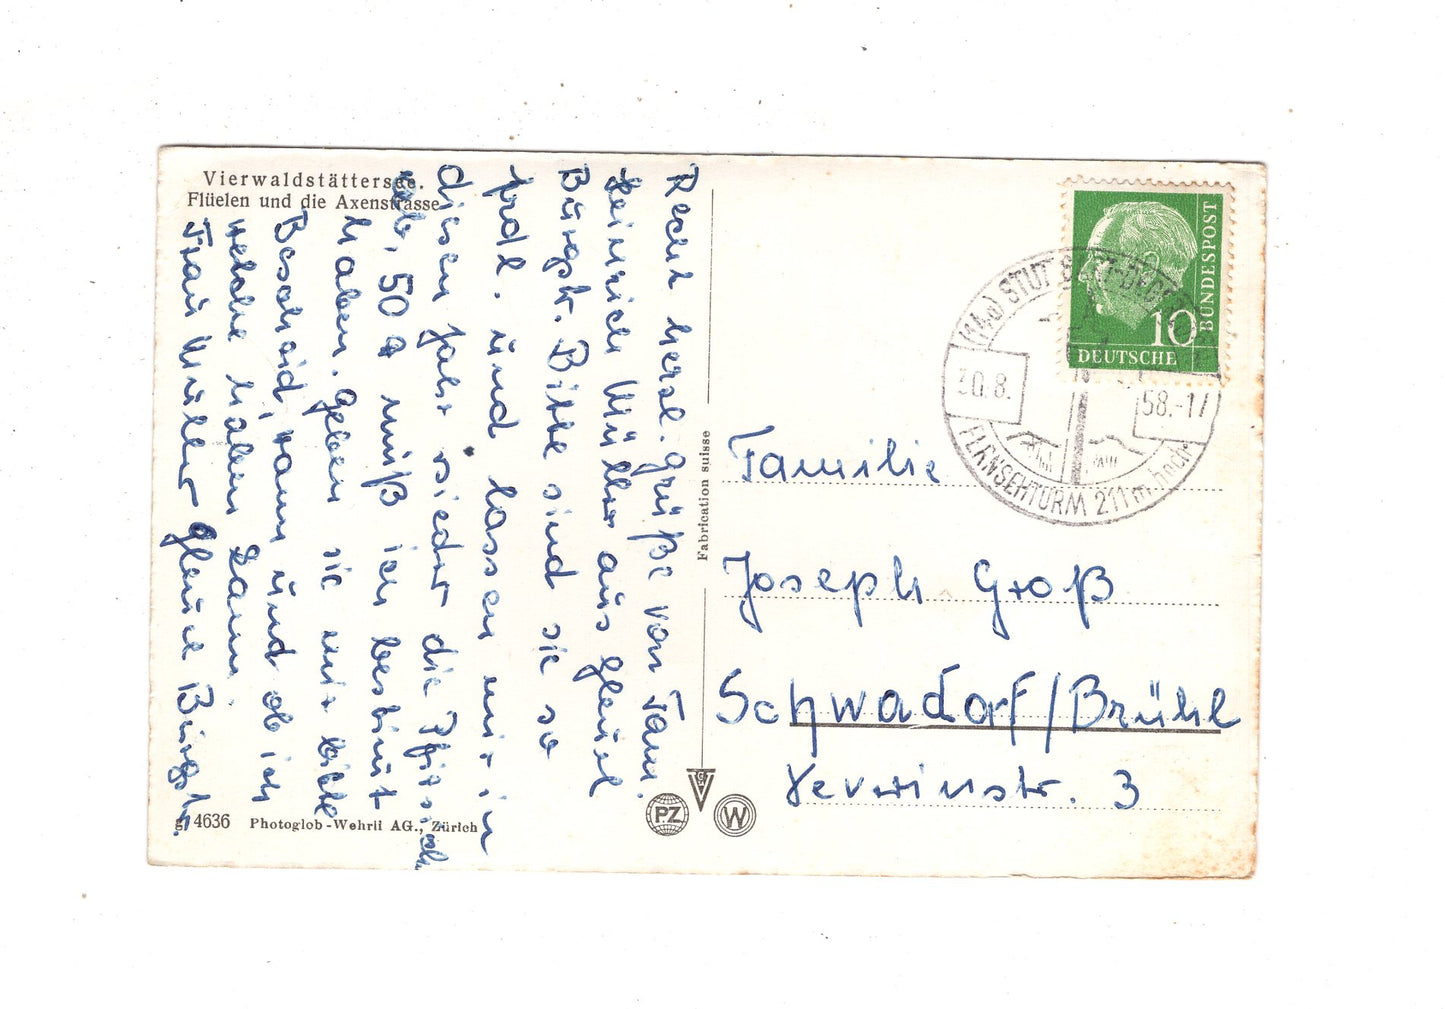 Vierwaldstättersee.
Flüelen und die Axenstrasse
Recht herzl. Grüße von Fam.
Heinrich Müller aus Gleuel
Burgstr. Bitte sind sie so
frdl. und lassen mir in
diesen Jahr wieder die Pfirsich
ab, 50 muß ich bestimt
haben. Geben sie mir bitte
Bescheid, wann und ob ich
welche haben kann.
Frau Müller Gleuel Burgstr.
4636 Photoglob-Wehrli AG., Zürich
Fabrication suisse
PZ
W
BUNDESPOST
10
DEUTSCHE
(14a) STUTTGART-DEGERLOCH
30.8.
58.-17
FERNSEHTURM 211 m hoch
Familie
Joseph Groß
Schwadorf/Brühl
Severinstr. 3